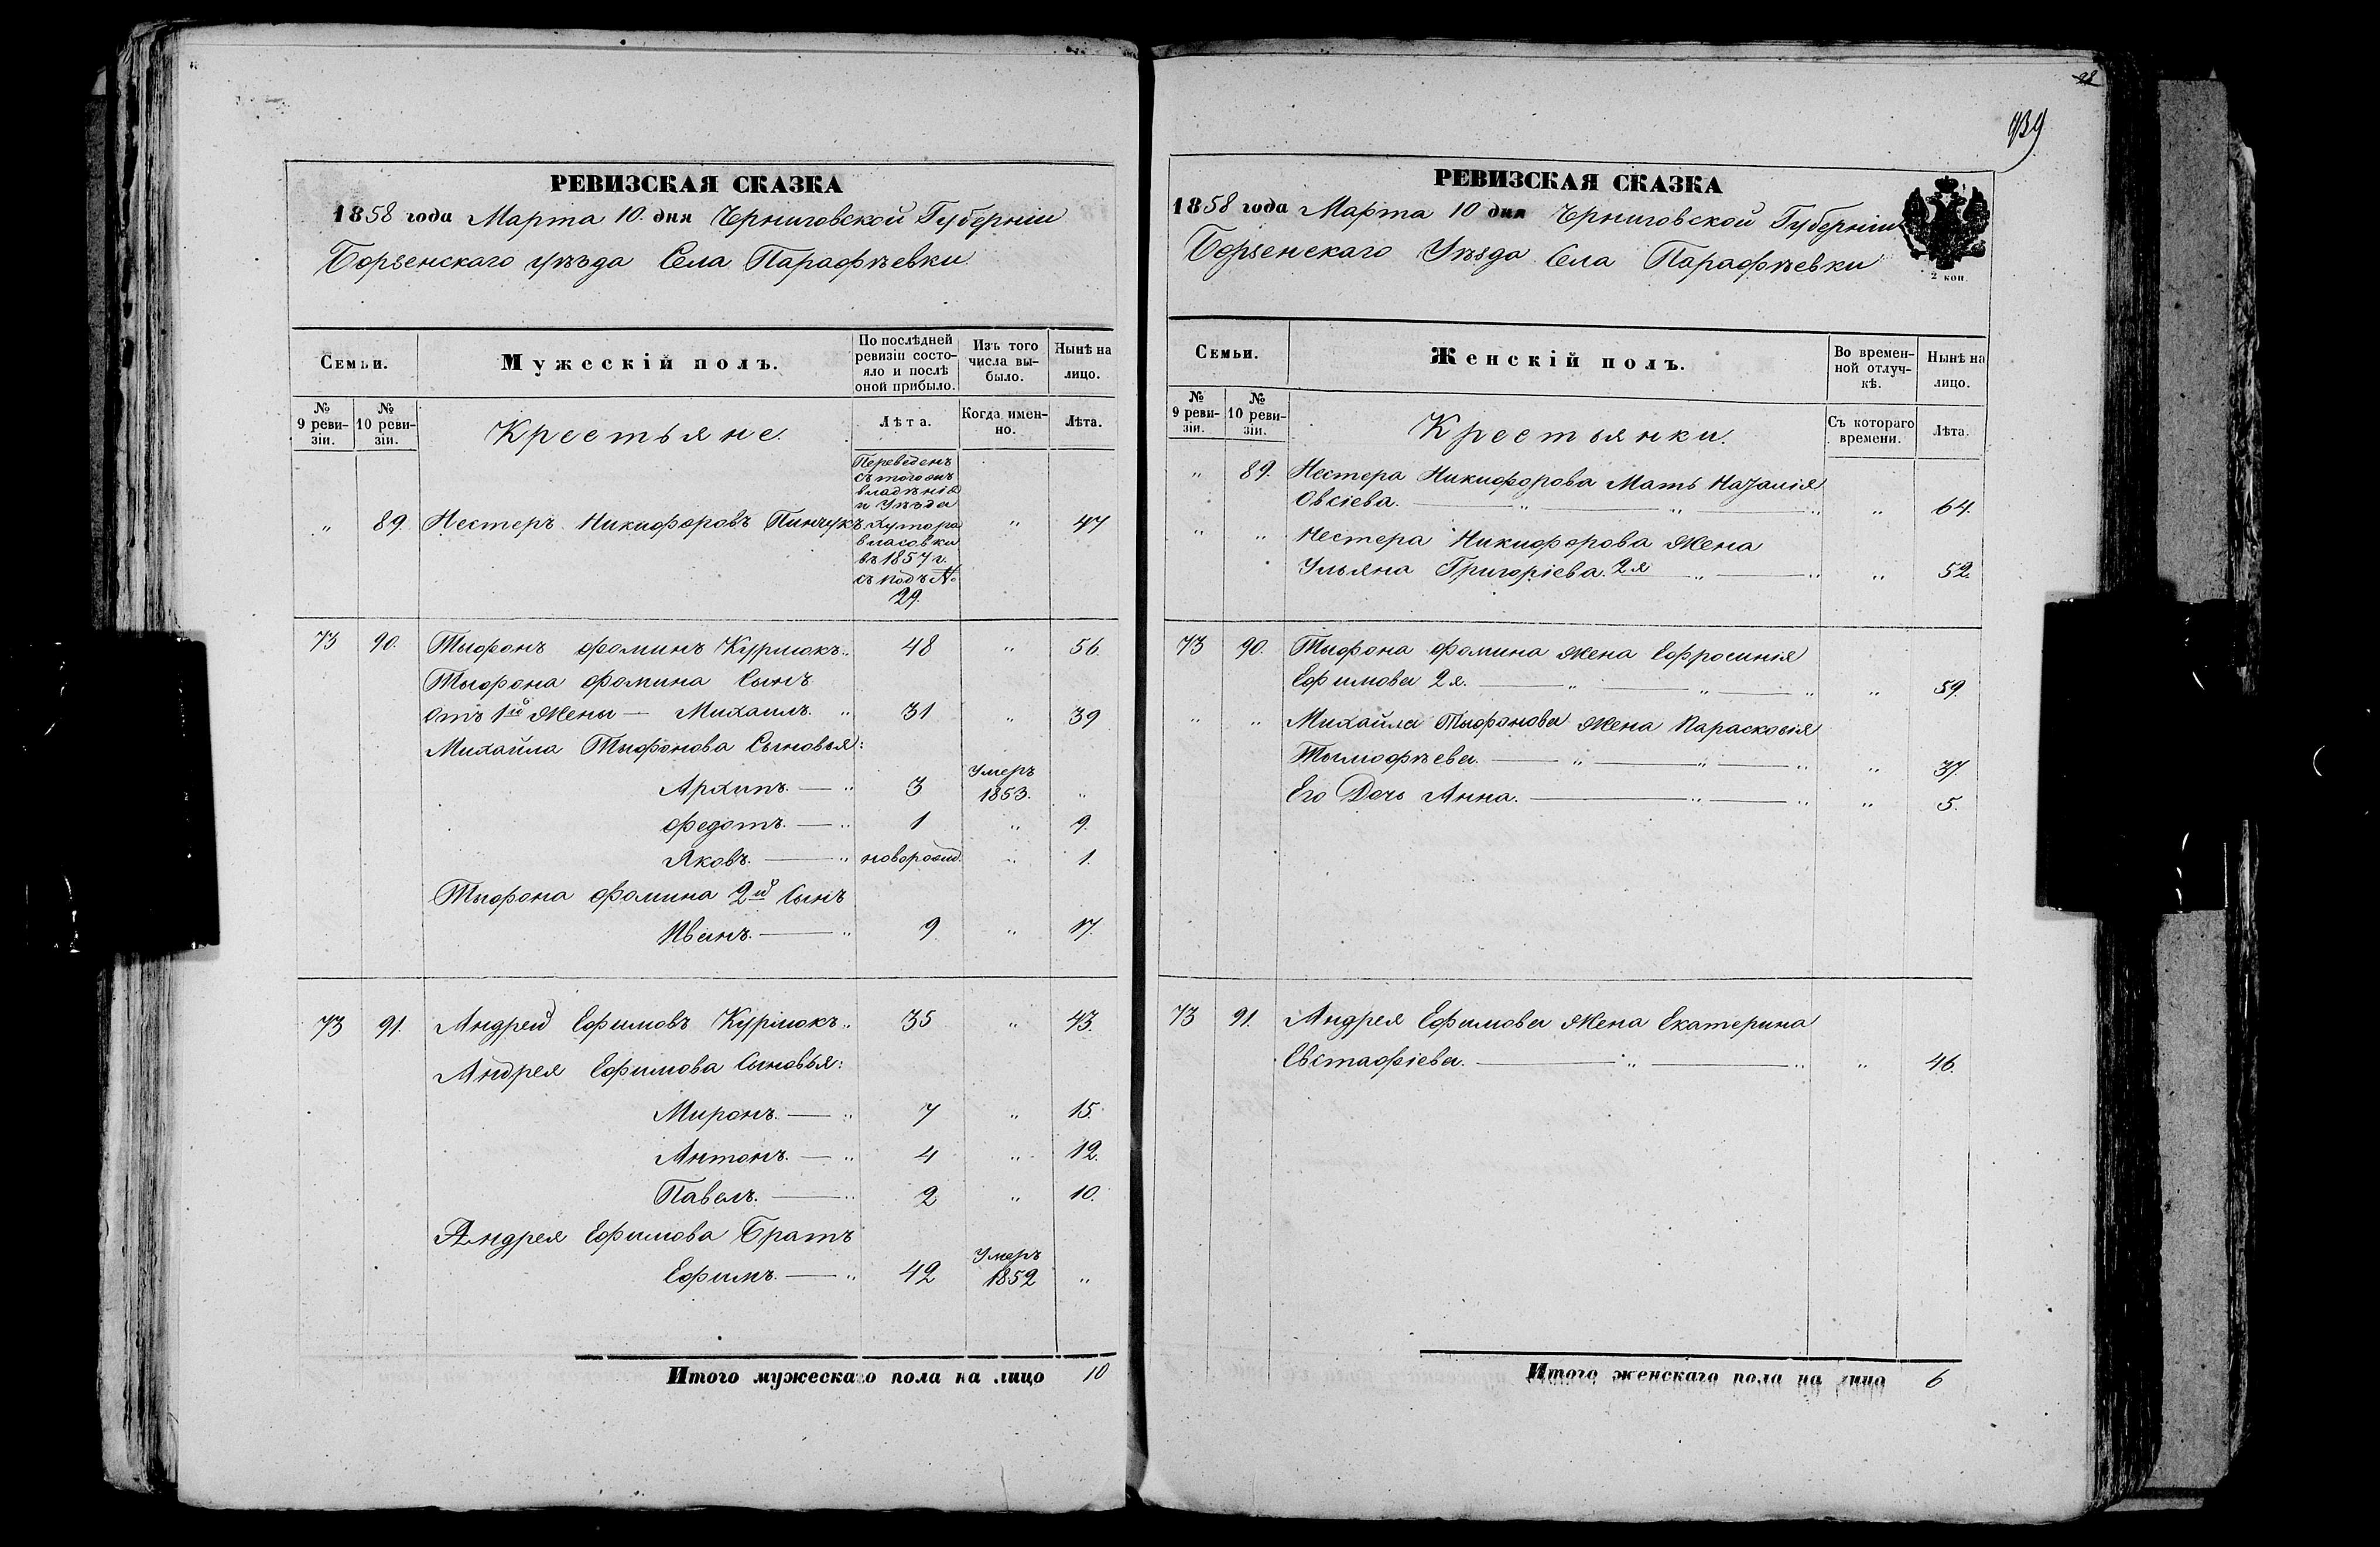 РЕВИЗСКАЯ СКАЗКА
1858 года Марта 10 дня Черниговской Губерніи
Борзенскаго уѣзда Села Парафѣевки
Семьи.
Мужескій полъ.
По послѣдней ревизіи состояло и послѣ оной прибыло.
Изъ того числа выбыло.
Нынѣ на лицо.
№ 9 ревизіи.
№ 10 ревизіи.
Крестьяне.
Лѣта.
Когда именно.
Лѣта.
Переведенъ
съ того онъ
владѣнія
и Уѣзда
„ 89. Нестеръ Никифоровъ Пинчукъ Хутора „ 47
власовки
въ 1857 г.
съ подъ №
29.
73 90. Тыфонъ Фоминъ Курмокъ „ 48 „ 56.
Тыфона Фомина Сынъ
Отъ 1й Жены — Михаилъ. „ 31 „ 39
Михайла Тыфонова Сыновья:
Архипъ. — „ 3 Умеръ 1853. „
Федотъ. — „ 1 „ 9.
Яковъ. — „ новорожд. „ 1.
Тыфона Фомина 2й Сынъ
Иванъ. — „ 9 „ 17.
73 91. Андрей Ефимовъ Курмокъ „ 35 „ 43.
Андрея Ефимова Сыновья:
Миронъ. — „ 7 „ 15.
Антонъ. — „ 4 „ 12.
Павелъ. — „ 2 „ 10.
Андрея Ефимова Братъ
Ефимъ. — „ 42 Умеръ 1852 „
Итого мужескаго пола на лицо 10
28
939
РЕВИЗСКАЯ СКАЗКА
1858 года Марта 10 дня Черниговской Губерніи
Борзенскаго Уѣзда Села Парафѣевки
2 коп.
Семьи.
Женскій полъ.
Во временной отлучкѣ.
Нынѣ на лицо.
№ 9 ревизіи.
№ 10 ревизіи.
Крестьянки.
Съ котораго времени.
Лѣта.
„ 89. Нестера Никифорова Мать Наталія
Овсіева. — „ — „ — „ „ 64.
„ „ Нестера Никифорова Жена
Ульяна Григоріева. 2я „ — „ „ 52.
73 90. Тыфона Фомина Жена Ефросинія
Ефимова 2я. — „ — „ — „ „ 59.
„ „ Михайла Тыфонова Жена Парасковія
Тымофѣева. — „ — „ — „ „ 37.
Его Дочь Анна. — „ — „ „ 5.
73 91. Андрея Ефимова Жена Екатерина
Евстафіева. — „ — „ „ 46.
Итого женскаго пола на лицо 6